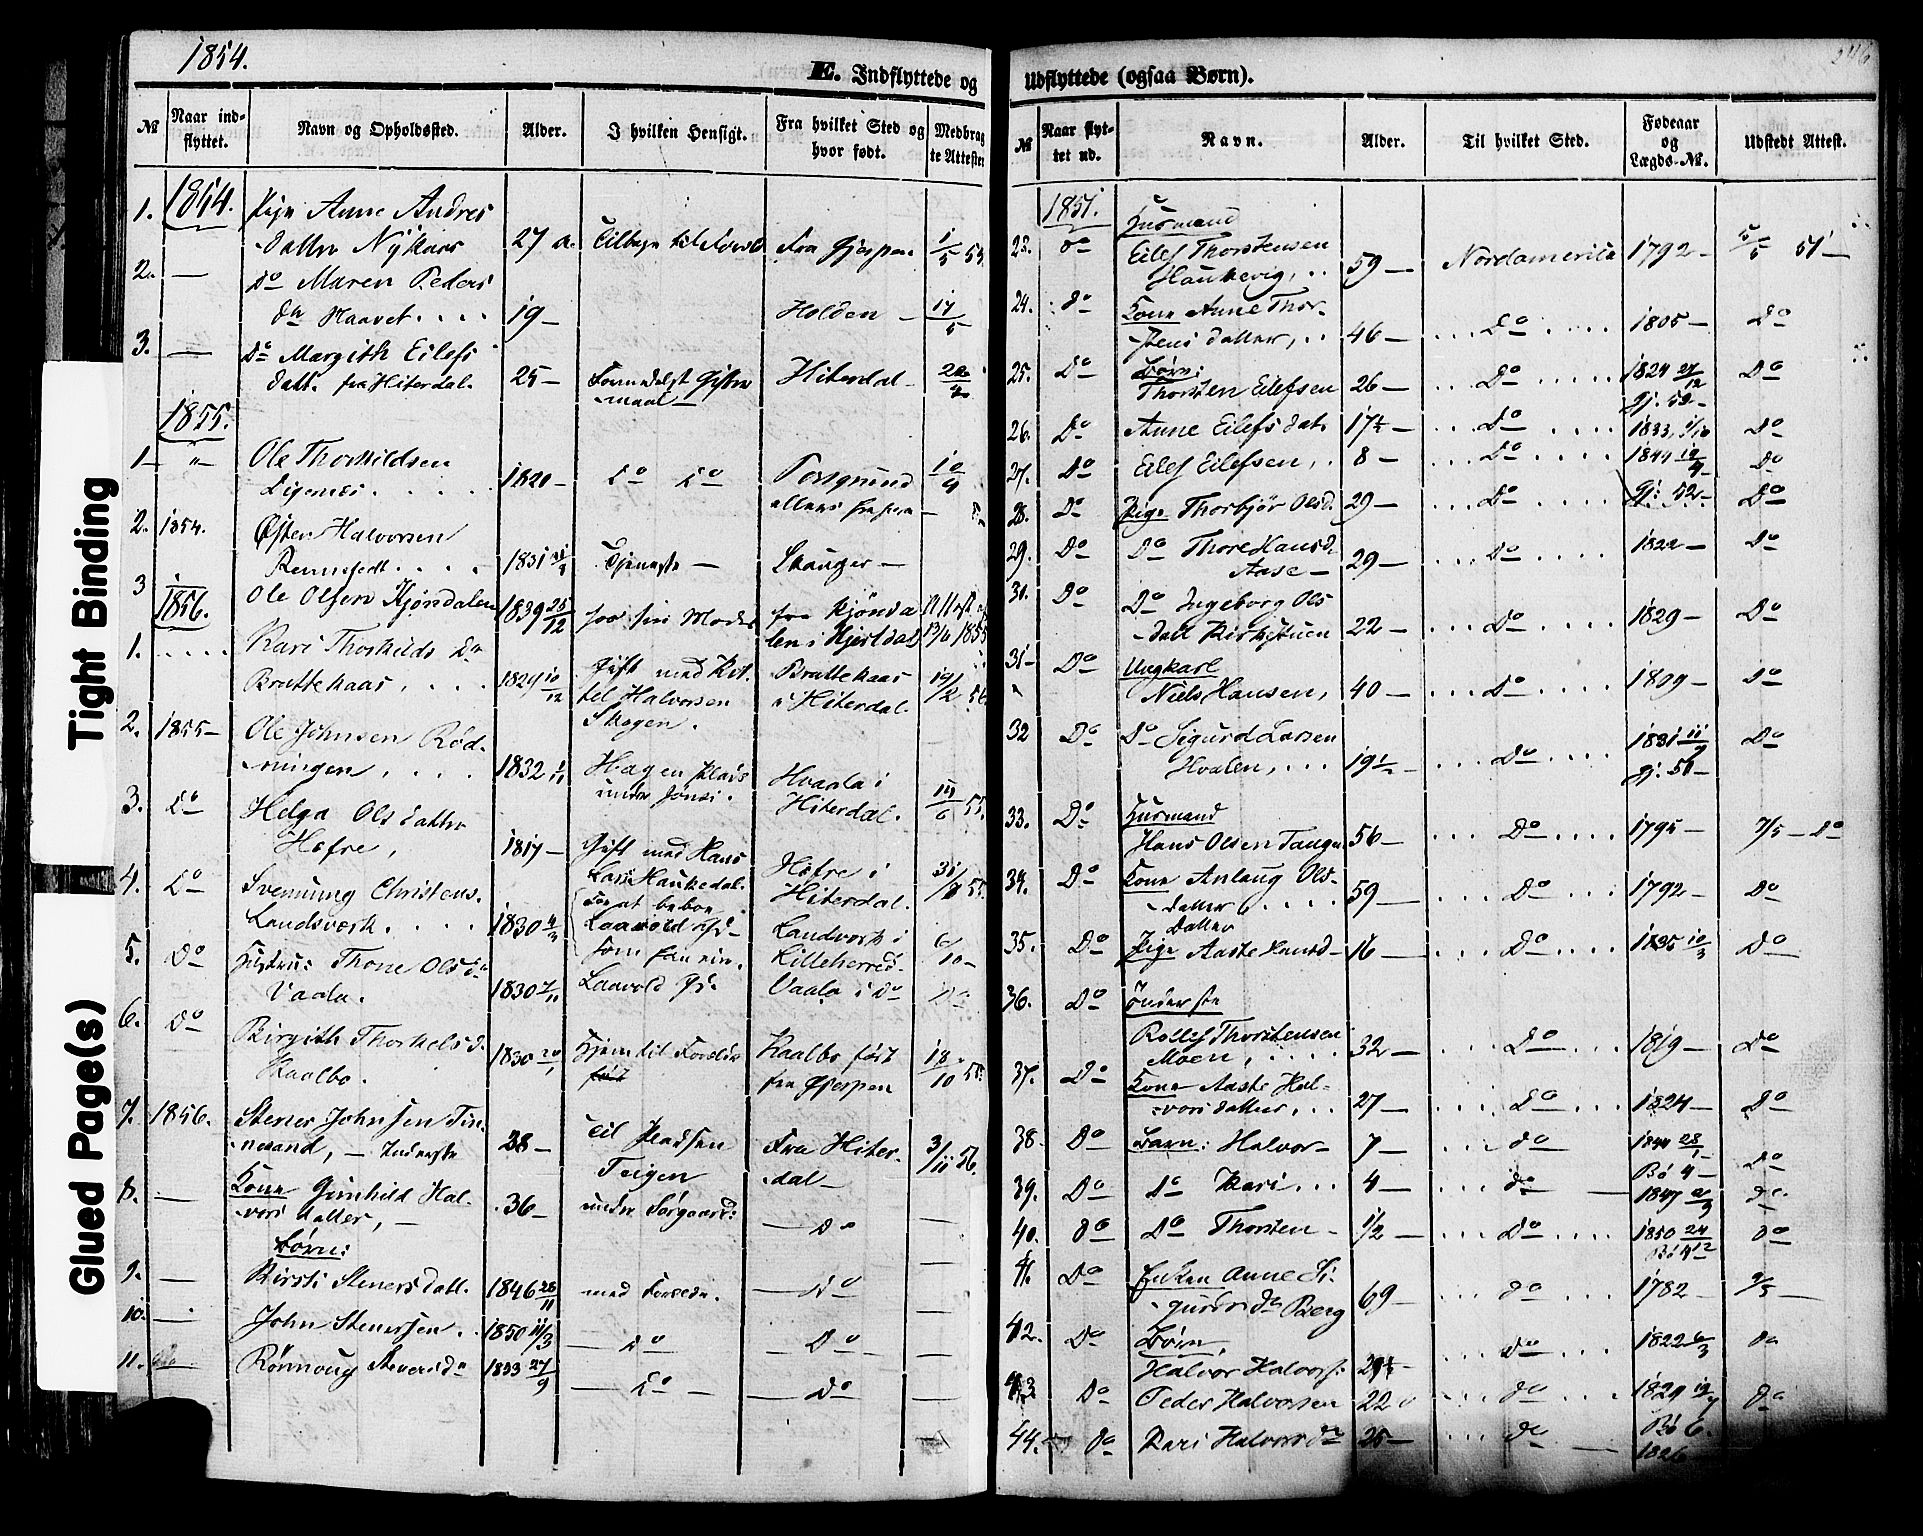 1854.
E. Indflyttede og
№
Naar ind-
flyttet.
Navn og Opholdssted.
Alder.
I hvilken Hensigt.
Fra hvilket Sted og
hvor født.
Medbrag
te Attester
1. 1854. Pige Anne Andres
datter Nykaas 27 a. Tilbage til Fra Gjerpen 1/5 54
2. — Do Maren Peders
dtr Haavet . . . . 19 — Holden — 17/5
3. — Do Margith Eilefs
datt. fra Hiterdal. 25 — Formedelst Gifter
maal — Hiterdal —
1855.
1 — „ — Ole Thorkildsen
Ligenes . . . . 1820 — Do Do Porsgrund 10/9
2. 1854. Østen Halvorsen
. . . . 1831 Tjeneste — Slauger —
3 Ole Olsen Kjøndalen 1839 25/12 hos sin Moder fra Kjønda
len i Hjertdal 13/6 1855
1856.
1. . . . . Kari Thorkilds Dr
Brattekaas, . . . . 1829 10/12 Gift med Kit
til Halvorsen
Skogen. Brattekaas
i Hiterdal. 19/2 56
2. 1855 — Ole Johnsen Rød-
ningen, . . . . 1832 Hagen Plads
under Jønsi. Hvaala i
Hiterdal. 14/6 55
3. Do Helga Olsdatter
Hofre, 1817 — Gift med Hans
Lars Haukedal. Hofre i
Hiterdal. 31/ 55
4. Do Svennung Christens.
Landsværk . . . . 1830 4/3 For at beboe
Laavold
Som Landværk i
Lilleherred. 6/10 —
5. Do Hustru: Thone Olsdr
Vaala. 1830 7/11 Laavold Vaala i Do Do
6. Do Birgith Thorkelsd.
Kaalbo. 1830 20/1 Hjem til Foreldr Kaalbo født
fra Gjerpen 18/10 55
7. 1856. Stener Johnsen Tin-
maand, — Inderste 38 — Til Pladsen
Teigen Fra Hiter-
dal — 3/11 56
8. — Kone Gunhild Hal-
vorsdatter, — 36 — under Sørgaard: — Do —
Børn:
9. — Kirsti Stenersdatt. 1846 28/11 med Foreldr. — Do —
10. — John Stenersen . 1850 11/3 — Do — Do —
11. Rønnoug Stenersdr 1853 27/9 — Do — — Do —
246
Udflyttede (ogsaa Børn).
№
Naar flyt-
tet ud.
Navn.
Alder.
Til hvilket Sted.
Fødeaar
og
Lægds-№.
Udstedt Attest.
1851. Huusmand
23. Do Eilef Thorstensen
Haukevig, . . 59 — Nordamerica 1792 — 5/5 51 —
24. Do Kone Anne Thor-
stensdatter, . . 46 — . . . Do . . . . 1805 — Do
25. Do Børn:
Thorsten Eilefsen 26 — . . . Do . . . . 1824 27/12
gj. 52 — Do
26. Do Anne Eilefsdat. 17½ — . . . Do . . . . 1833, 1/10 Do
27. Do Eilef Eilefsen, . 8 — . . . Do . . . . 1844 Do
28. Do Pige Thorbjør Olsd. 29 — . . . Do . . . . gj. 52 — Do
29. Do Do Thore Hansd.
Aase — 29 — . . . Do . . . . 1822 — Do
30. Do Do Ingeborg Ols
datt Kirkestuen 22 — . . . Do . . . . 1829 — Do
31 — Do Ungkarl
Niels Hansen, 40 — . . . Do . . . . 1809 — Do
32 Do Do Sigurd Larsen
Hvalen, . . . 19½ — . . . Do . . . . 1831 11/9
gj. 50 — Do
33. Do Huusmand
Hans Olsen Tangen 56 — . . . Do . . . . 1795 — 7/5 — Do
34. Do Kone Anlaug Ols-
datter, . . . . 59 — . . . Do . . . . 1792 — Do
Datter
35. Do Pige Aaste Hansd — 16 — . . . Do . . . . 1835 10/3 Do
36. Do Inderste
Rollef Thorstensen
Moen, . . . . 32 — . . . Do . . . . 1819 — Do
37. Do Kone Aaste Hal-
vorsdatter, . . . 27 — . . . Do . . . 1824 — Do
38. Do Barn: Halvor — 7 — . . . do . . . 1844 28/1
Bø 4 — Do
39. Do do Kari . . . 4 — . . . do — 1847 do
40. do Do Thorsten — ½ — . . . Do . . . . 1850 24/12
Bø 4 do
41. Do Enken Anne Si-
gurdsdr Berg 69 — . . . do . . . . 1782 — 9/5 —
42. Do Børn,
Halvor Halvors: 29½ — . . . Do . . . . 1822 6/3 do
43 Do Peder Halvorsen 22 . . . do . . . . 1829
Bø 6. do
44. do Kari Halvorsdr 25 — . . . do — 1826
Tight Binding
Glued Page(s)